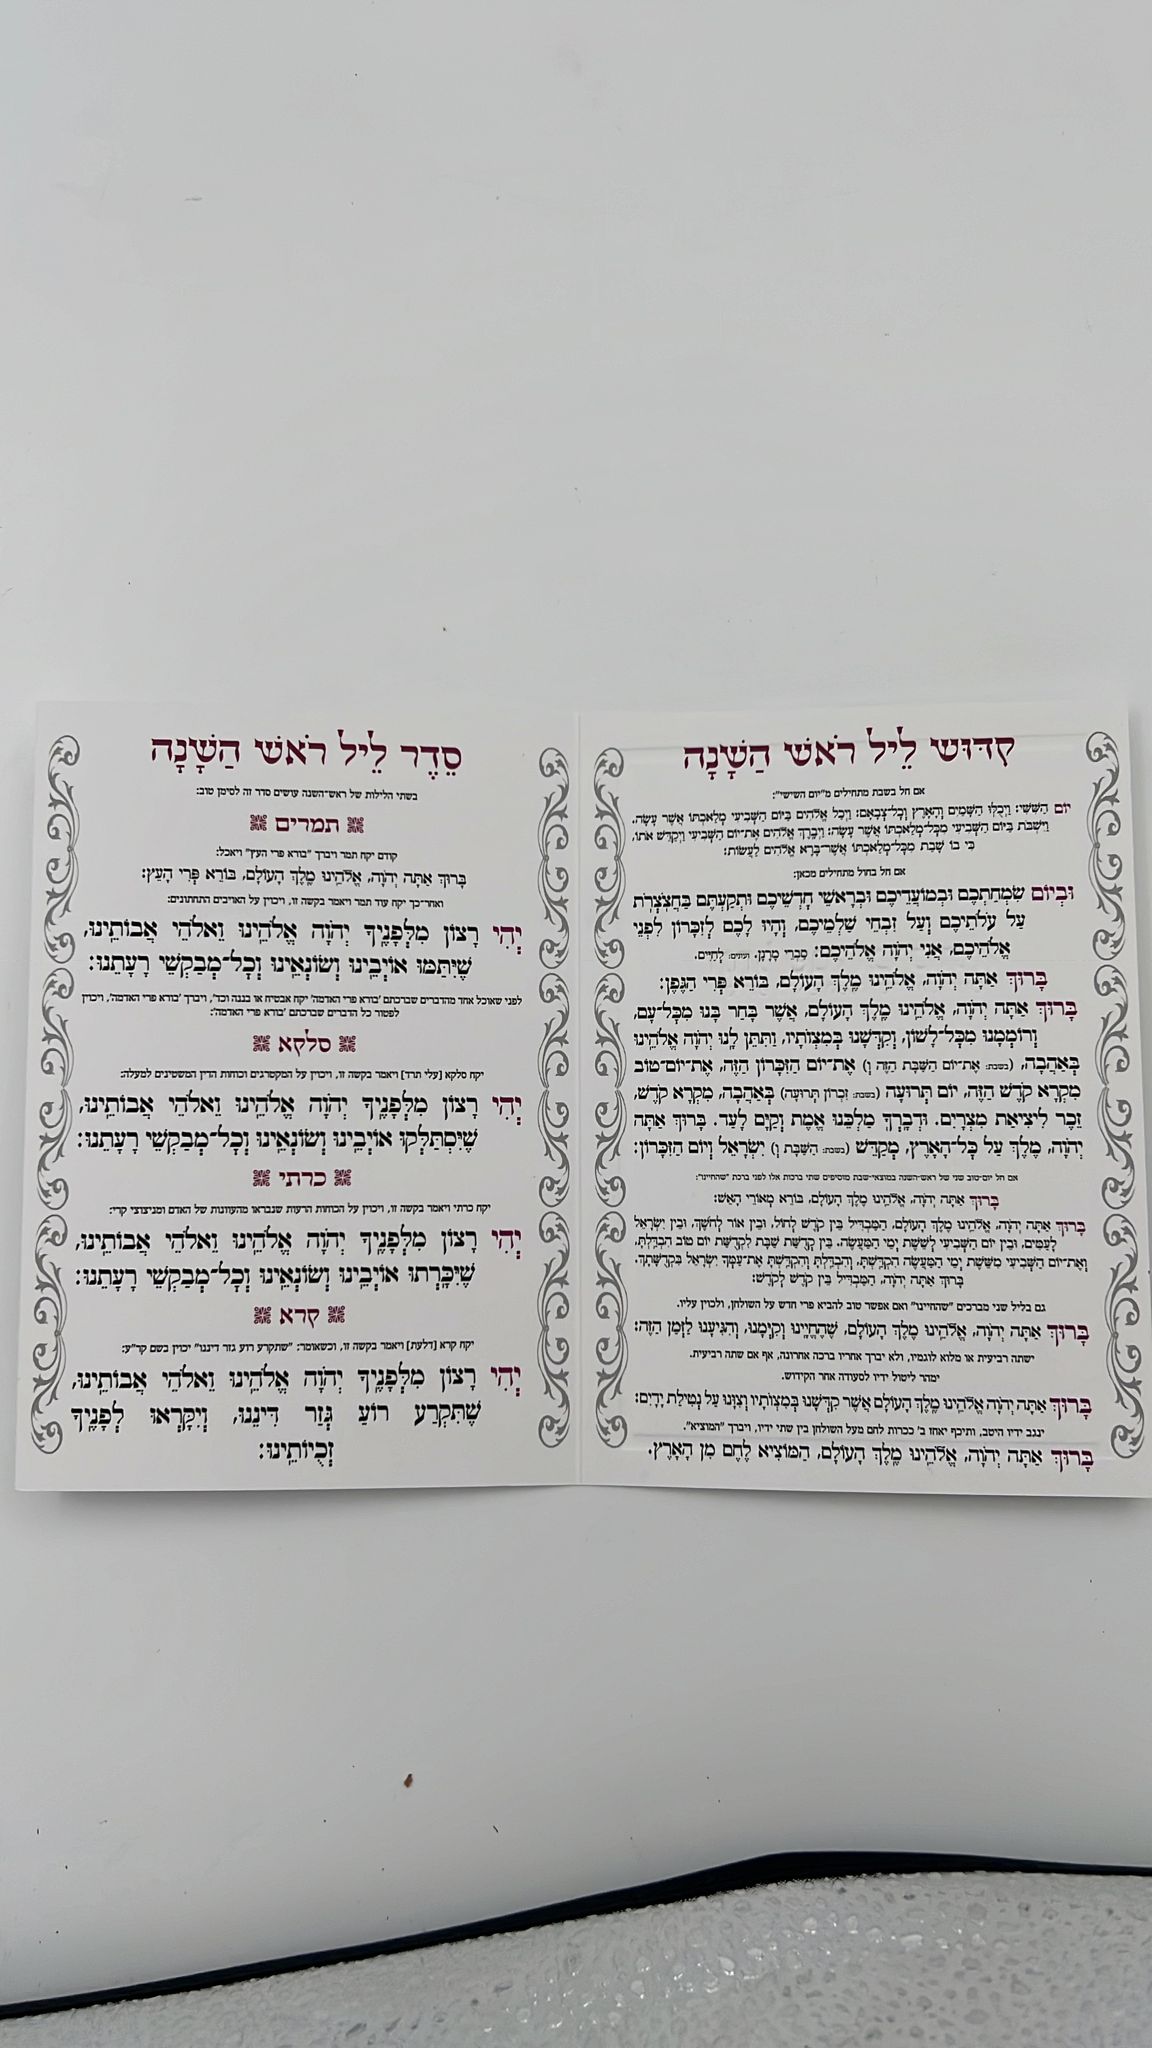 קִדּוּשׁ לֵיל רֹאשׁ הַשָּׁנָה
אם חל בשבת מתחילים מ"יום השישי":
יוֹם הַשִּׁשִּׁי: וַיְכֻלּוּ הַשָּׁמַיִם וְהָאָרֶץ וְכָל־צְבָאָם: וַיְכַל אֱלֹהִים בַּיּוֹם הַשְּׁבִיעִי מְלַאכְתּוֹ אֲשֶׁר עָשָׂה,
וַיִּשְׁבֹּת בַּיּוֹם הַשְּׁבִיעִי מִכָּל־מְלַאכְתּוֹ אֲשֶׁר עָשָׂה: וַיְבָרֶךְ אֱלֹהִים אֶת־יוֹם הַשְּׁבִיעִי וַיְקַדֵּשׁ אֹתוֹ,
כִּי בוֹ שָׁבַת מִכָּל־מְלַאכְתּוֹ אֲשֶׁר־בָּרָא אֱלֹהִים לַעֲשׂוֹת:
אם חל בחול מתחילים מכאן:
וּבְיוֹם שִׂמְחַתְכֶם וּבְמוֹעֲדֵיכֶם וּבְרָאשֵׁי חָדְשֵׁיכֶם וּתְקַעְתֶּם בַּחֲצֹצְרֹת
עַל עֹלֹתֵיכֶם וְעַל זִבְחֵי שַׁלְמֵיכֶם, וְהָיוּ לָכֶם לְזִכָּרוֹן לִפְנֵי
אֱלֹהֵיכֶם, אֲנִי יְהֹוָה אֱלֹהֵיכֶם: סַבְרִי מָרָנָן. ועונים: לְחַיִּים.
בָּרוּךְ אַתָּה יְהֹוָה, אֱלֹהֵינוּ מֶלֶךְ הָעוֹלָם, בּוֹרֵא פְּרִי הַגֶּפֶן:
בָּרוּךְ אַתָּה יְהֹוָה, אֱלֹהֵינוּ מֶלֶךְ הָעוֹלָם, אֲשֶׁר בָּחַר בָּנוּ מִכָּל־עָם,
וְרוֹמְמָנוּ מִכָּל־לָשׁוֹן, וְקִדְּשָׁנוּ בְּמִצְוֹתָיו, וַתִּתֶּן לָנוּ יְהֹוָה אֱלֹהֵינוּ
בְּאַהֲבָה, (בשבת: אֶת־יוֹם הַשַּׁבָּת הַזֶּה וְ) אֶת־יוֹם הַזִּכָּרוֹן הַזֶּה, אֶת־יוֹם־טוֹב
מִקְרָא קֹדֶשׁ הַזֶּה, יוֹם תְּרוּעָה (בשבת: זִכְרוֹן תְּרוּעָה) בְּאַהֲבָה, מִקְרָא קֹדֶשׁ,
זֵכֶר לִיצִיאַת מִצְרָיִם. וּדְבָרְךָ מַלְכֵּנוּ אֱמֶת וְקַיָּם לָעַד. בָּרוּךְ אַתָּה
יְהֹוָה, מֶלֶךְ עַל כָּל־הָאָרֶץ, מְקַדֵּשׁ (בשבת: הַשַּׁבָּת וְ) יִשְׂרָאֵל וְיוֹם הַזִּכָּרוֹן:
אם חל יום־טוב שני של ראש־השנה במוצאי־שבת מוסיפים שתי ברכות אלו לפני ברכת "שהחיינו":
בָּרוּךְ אַתָּה יְהֹוָה, אֱלֹהֵינוּ מֶלֶךְ הָעוֹלָם, בּוֹרֵא מְאוֹרֵי הָאֵשׁ:
בָּרוּךְ אַתָּה יְהֹוָה, אֱלֹהֵינוּ מֶלֶךְ הָעוֹלָם, הַמַּבְדִּיל בֵּין קֹדֶשׁ לְחוֹל, וּבֵין אוֹר לְחֹשֶׁךְ, וּבֵין יִשְׂרָאֵל
לָעַמִּים, וּבֵין יוֹם הַשְּׁבִיעִי לְשֵׁשֶׁת יְמֵי הַמַּעֲשֶׂה. בֵּין קְדֻשַּׁת שַׁבָּת לִקְדֻשַּׁת יוֹם טוֹב הִבְדַּלְתָּ,
וְאֶת־יוֹם הַשְּׁבִיעִי מִשֵּׁשֶׁת יְמֵי הַמַּעֲשֶׂה הִקְדַּשְׁתָּ, וְהִבְדַּלְתָּ וְהִקְדַּשְׁתָּ אֶת־עַמְּךָ יִשְׂרָאֵל בִּקְדֻשָּׁתָךְ.
בָּרוּךְ אַתָּה יְהֹוָה, הַמַּבְדִּיל בֵּין קֹדֶשׁ לְקֹדֶשׁ:
גם בליל שני מברכים "שהחיינו" ואם אפשר טוב להביא פרי חדש על השולחן, ולכוין עליו.
בָּרוּךְ אַתָּה יְהֹוָה, אֱלֹהֵינוּ מֶלֶךְ הָעוֹלָם, שֶׁהֶחֱיָנוּ וְקִיְּמָנוּ, וְהִגִּיעָנוּ לַזְּמַן הַזֶּה:
ישתה רביעית או מלוא לוגמיו, ולא יברך אחריו ברכה אחרונה, אף אם שתה רביעית.
ימהר ליטול ידיו לסעודה אחר הקידוש.
בָּרוּךְ אַתָּה יְהֹוָה אֱלֹהֵינוּ מֶלֶךְ הָעוֹלָם אֲשֶׁר קִדְּשָׁנוּ בְּמִצְוֹתָיו וְצִוָּנוּ עַל נְטִילַת יָדָיִם:
ינגב ידיו היטב, ותיכף יאחז ב' ככרות לחם מעל השולחן בין שתי ידיו, ויברך "המוציא".
בָּרוּךְ אַתָּה יְהֹוָה, אֱלֹהֵינוּ מֶלֶךְ הָעוֹלָם, הַמּוֹצִיא לֶחֶם מִן הָאָרֶץ.
סֵדֶר לֵיל רֹאשׁ הַשָּׁנָה
בשתי הלילות של ראש־השנה עושים סדר זה לסימן טוב:
תמרים
קודם יקח תמר ויברך "בורא פרי העץ" ויאכל:
בָּרוּךְ אַתָּה יְהֹוָה, אֱלֹהֵינוּ מֶלֶךְ הָעוֹלָם, בּוֹרֵא פְּרִי הָעֵץ:
ואחר־כך יקח עוד תמר ויאמר בקשה זו, ויכוין על האויבים התחתונים:
יְהִי רָצוֹן מִלְּפָנֶיךָ יְהֹוָה אֱלֹהֵינוּ וֵאלֹהֵי אֲבוֹתֵינוּ,
שֶׁיִּתַּמּוּ אוֹיְבֵינוּ וְשׂוֹנְאֵינוּ וְכָל־מְבַקְשֵׁי רָעָתֵנוּ:
לפני שאוכל אחד מהדברים שברכתם 'בורא פרי האדמה' יקח אבטיח או בננה וכד', ויברך 'בורא פרי האדמה', ויכוין
לפטור כל הדברים שברכתם 'בורא פרי האדמה':
סלקא
יקח סלקא [עלי תרד] ויאמר בקשה זו, ויכוין על המקטרגים וכוחות הדין המשטינים למעלה:
יְהִי רָצוֹן מִלְּפָנֶיךָ יְהֹוָה אֱלֹהֵינוּ וֵאלֹהֵי אֲבוֹתֵינוּ,
שֶׁיִּסְתַּלְּקוּ אוֹיְבֵינוּ וְשׂוֹנְאֵינוּ וְכָל־מְבַקְשֵׁי רָעָתֵנוּ:
כרתי
יקח כרתי ויאמר בקשה זו, ויכוין על הכוחות הרעות שנבראו מהעוונות של האדם ומניצוצי קרי:
יְהִי רָצוֹן מִלְּפָנֶיךָ יְהֹוָה אֱלֹהֵינוּ וֵאלֹהֵי אֲבוֹתֵינוּ,
שֶׁיִּכָּרְתוּ אוֹיְבֵינוּ וְשׂוֹנְאֵינוּ וְכָל־מְבַקְשֵׁי רָעָתֵנוּ:
קרא
יקח קרא [דלעת] ויאמר בקשה זו, וכשאומר: "שתקרע רוע גזר דיננו" יכוין בשם קר"ע:
יְהִי רָצוֹן מִלְּפָנֶיךָ יְהֹוָה אֱלֹהֵינוּ וֵאלֹהֵי אֲבוֹתֵינוּ,
שֶׁתִּקְרַע רוֹעַ גְּזַר דִּינֵנוּ, וְיִקָּרְאוּ לְפָנֶיךָ
זָכִיּוֹתֵינוּ: